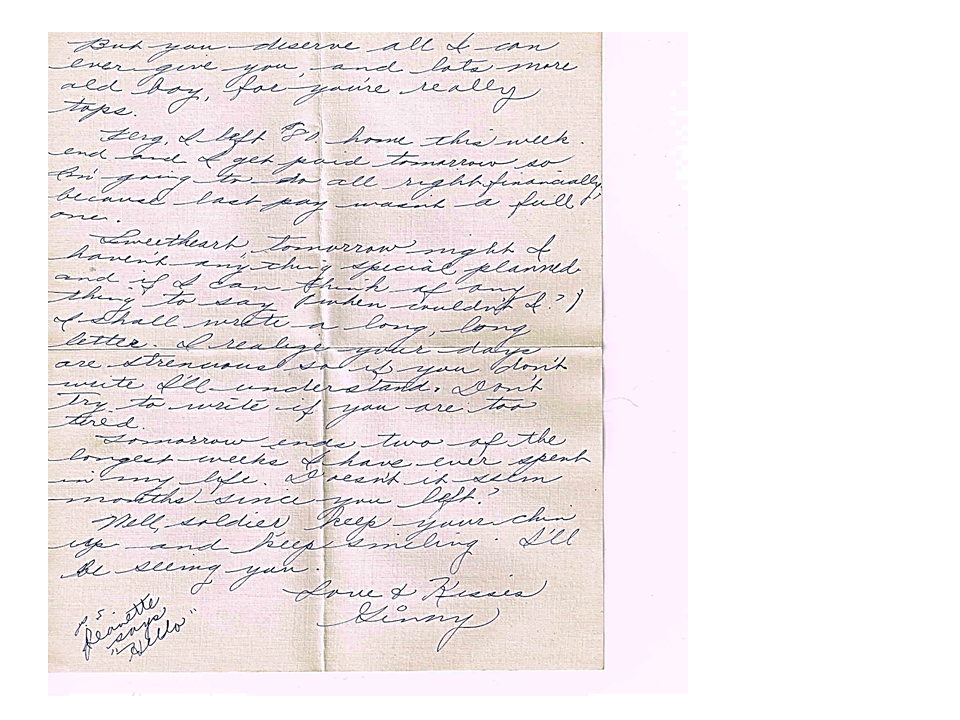 But you deserve all I can
ever give you, and lots more
old boy, for you're really
tops.
Ferg, I left $80 home this week
end and I get paid tomorrow so
I'm going to do all right financially,
because last pay wasn't a full
one.
Sweetheart, tomorrow night I
haven't anything special planned
and if I can think of any
thing to say (when couldn't I?)
I shall write a long, long
letter. I realize your days
are strenuous so if you don't
write I'll understand. Don't
try to write if you are too
tired.
Tomorrow ends two of the
longest weeks I have ever spent
in my life. Doesn't it seem
months since you left?
Well, soldier keep your chin
up and keep smiling. I'll
be seeing you.
Love & Kisses
Ginny
P.S.
Jeanette
says
"Hello"